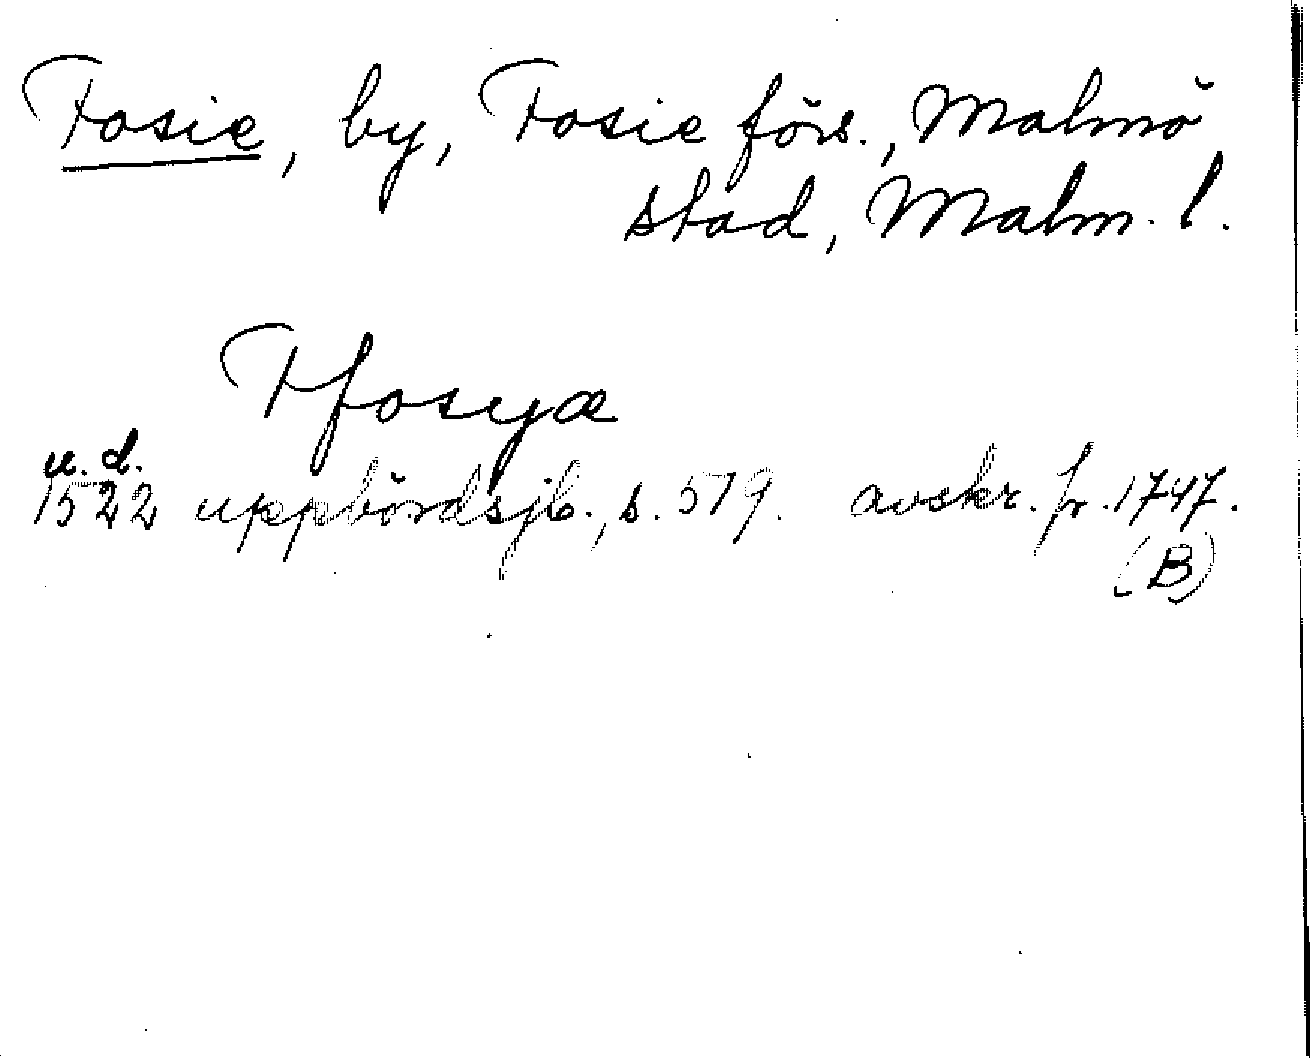 Fosie, by, Fosie förs., Malmö
stad, Malm. l.
Ffosyæ
u. d.
1522 uppbördsjb., s. 579. avskr. fr. 1747.
(B)